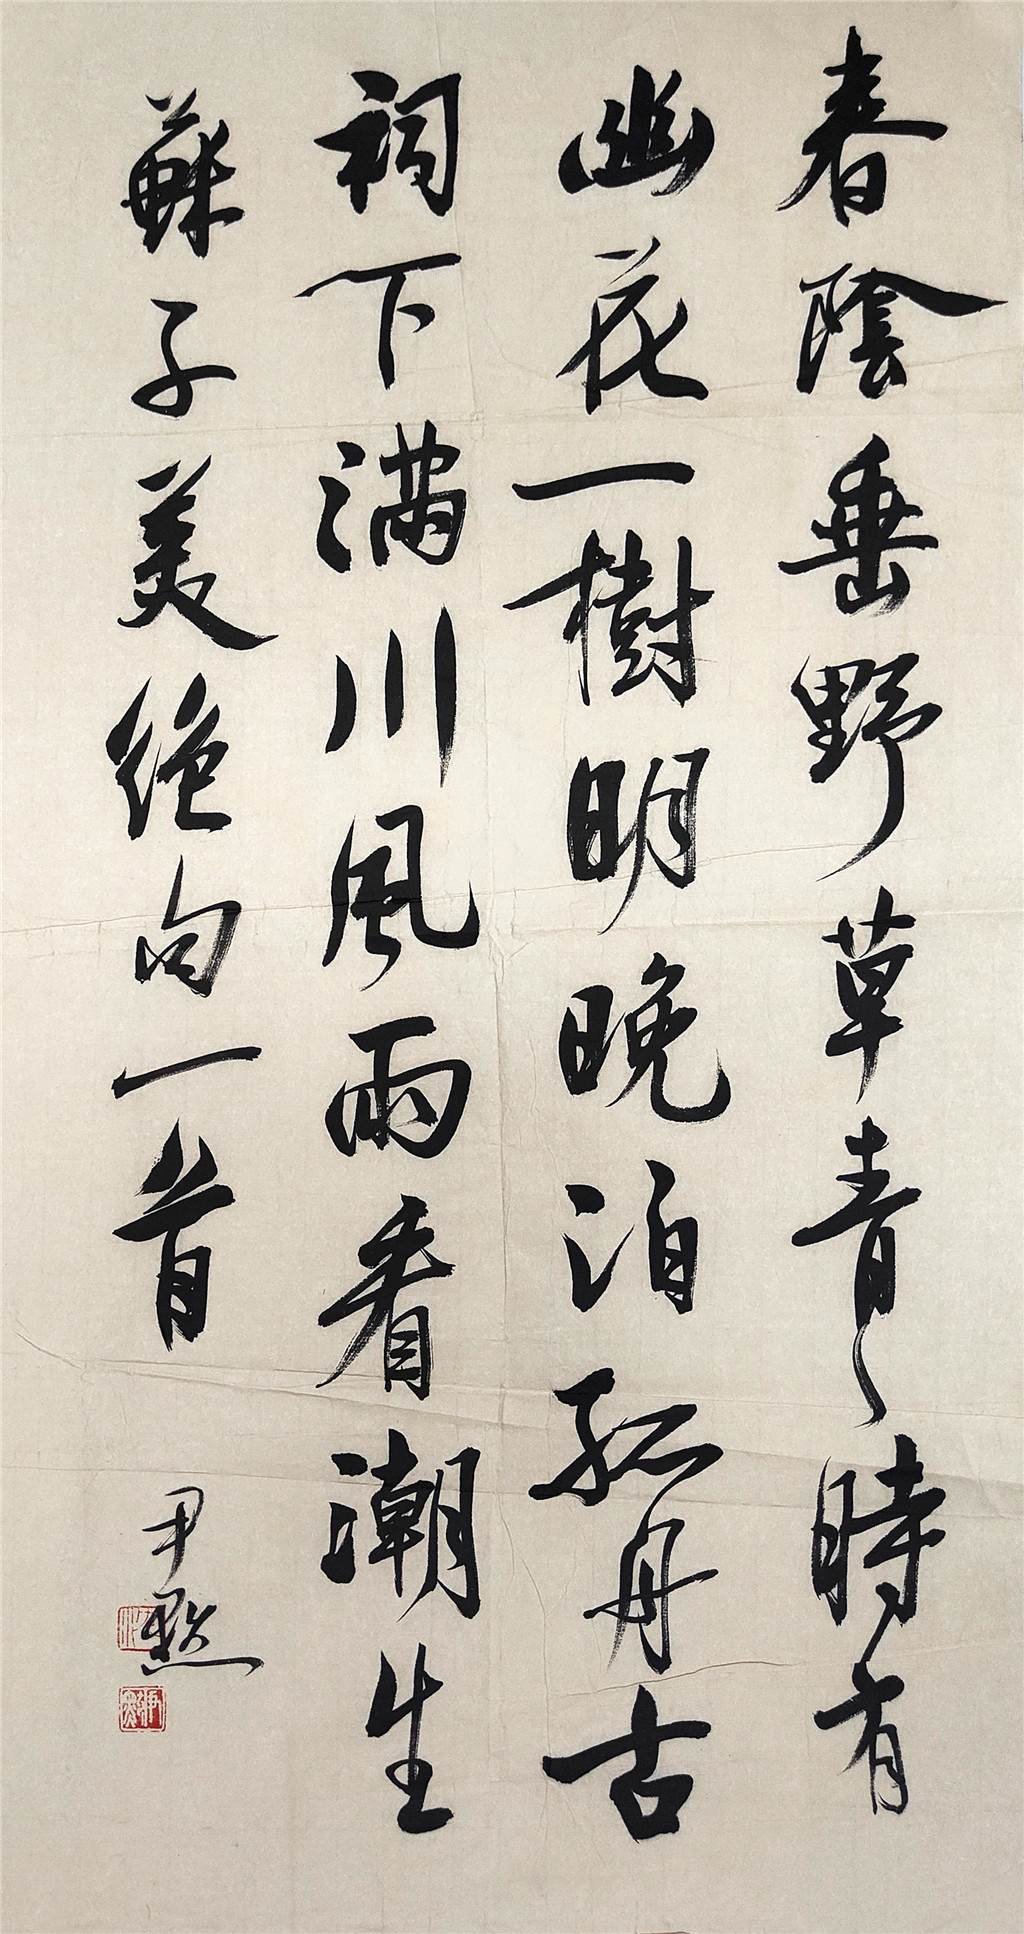 春陰垂野草青々時有
幽花一樹明晚泊孤舟古
祠下满川風雨看潮生
蘇子美絕句一首
尹默